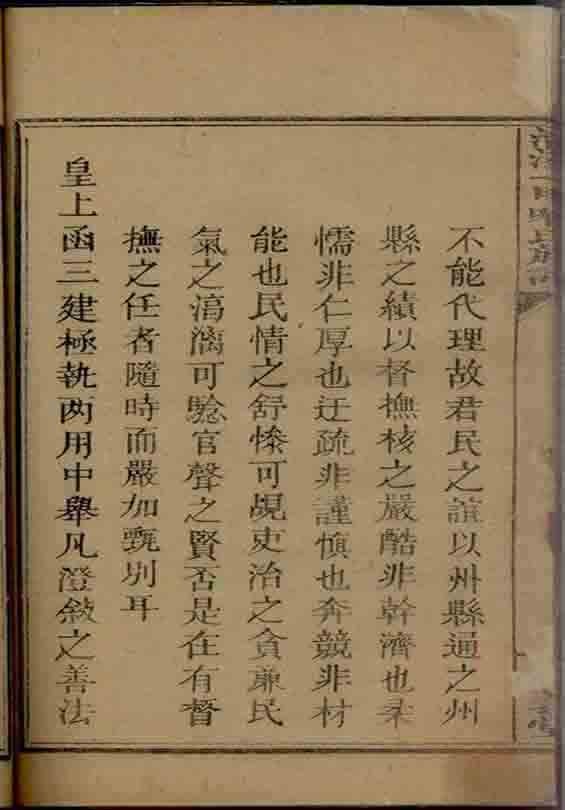 不能代理故君民之誼以州縣通之州
縣之績以督撫核之嚴酷非幹濟也柔
懦非仁厚也迂疏非謹慎也奔競非材
能也民情之舒慘可覘吏治之貪亷民
氣之漓漓可騐官聲之賢否是在有督
撫之任者隨時而嚴加甄别耳
皇上函三建極執两用中舉凡澄敘之善法